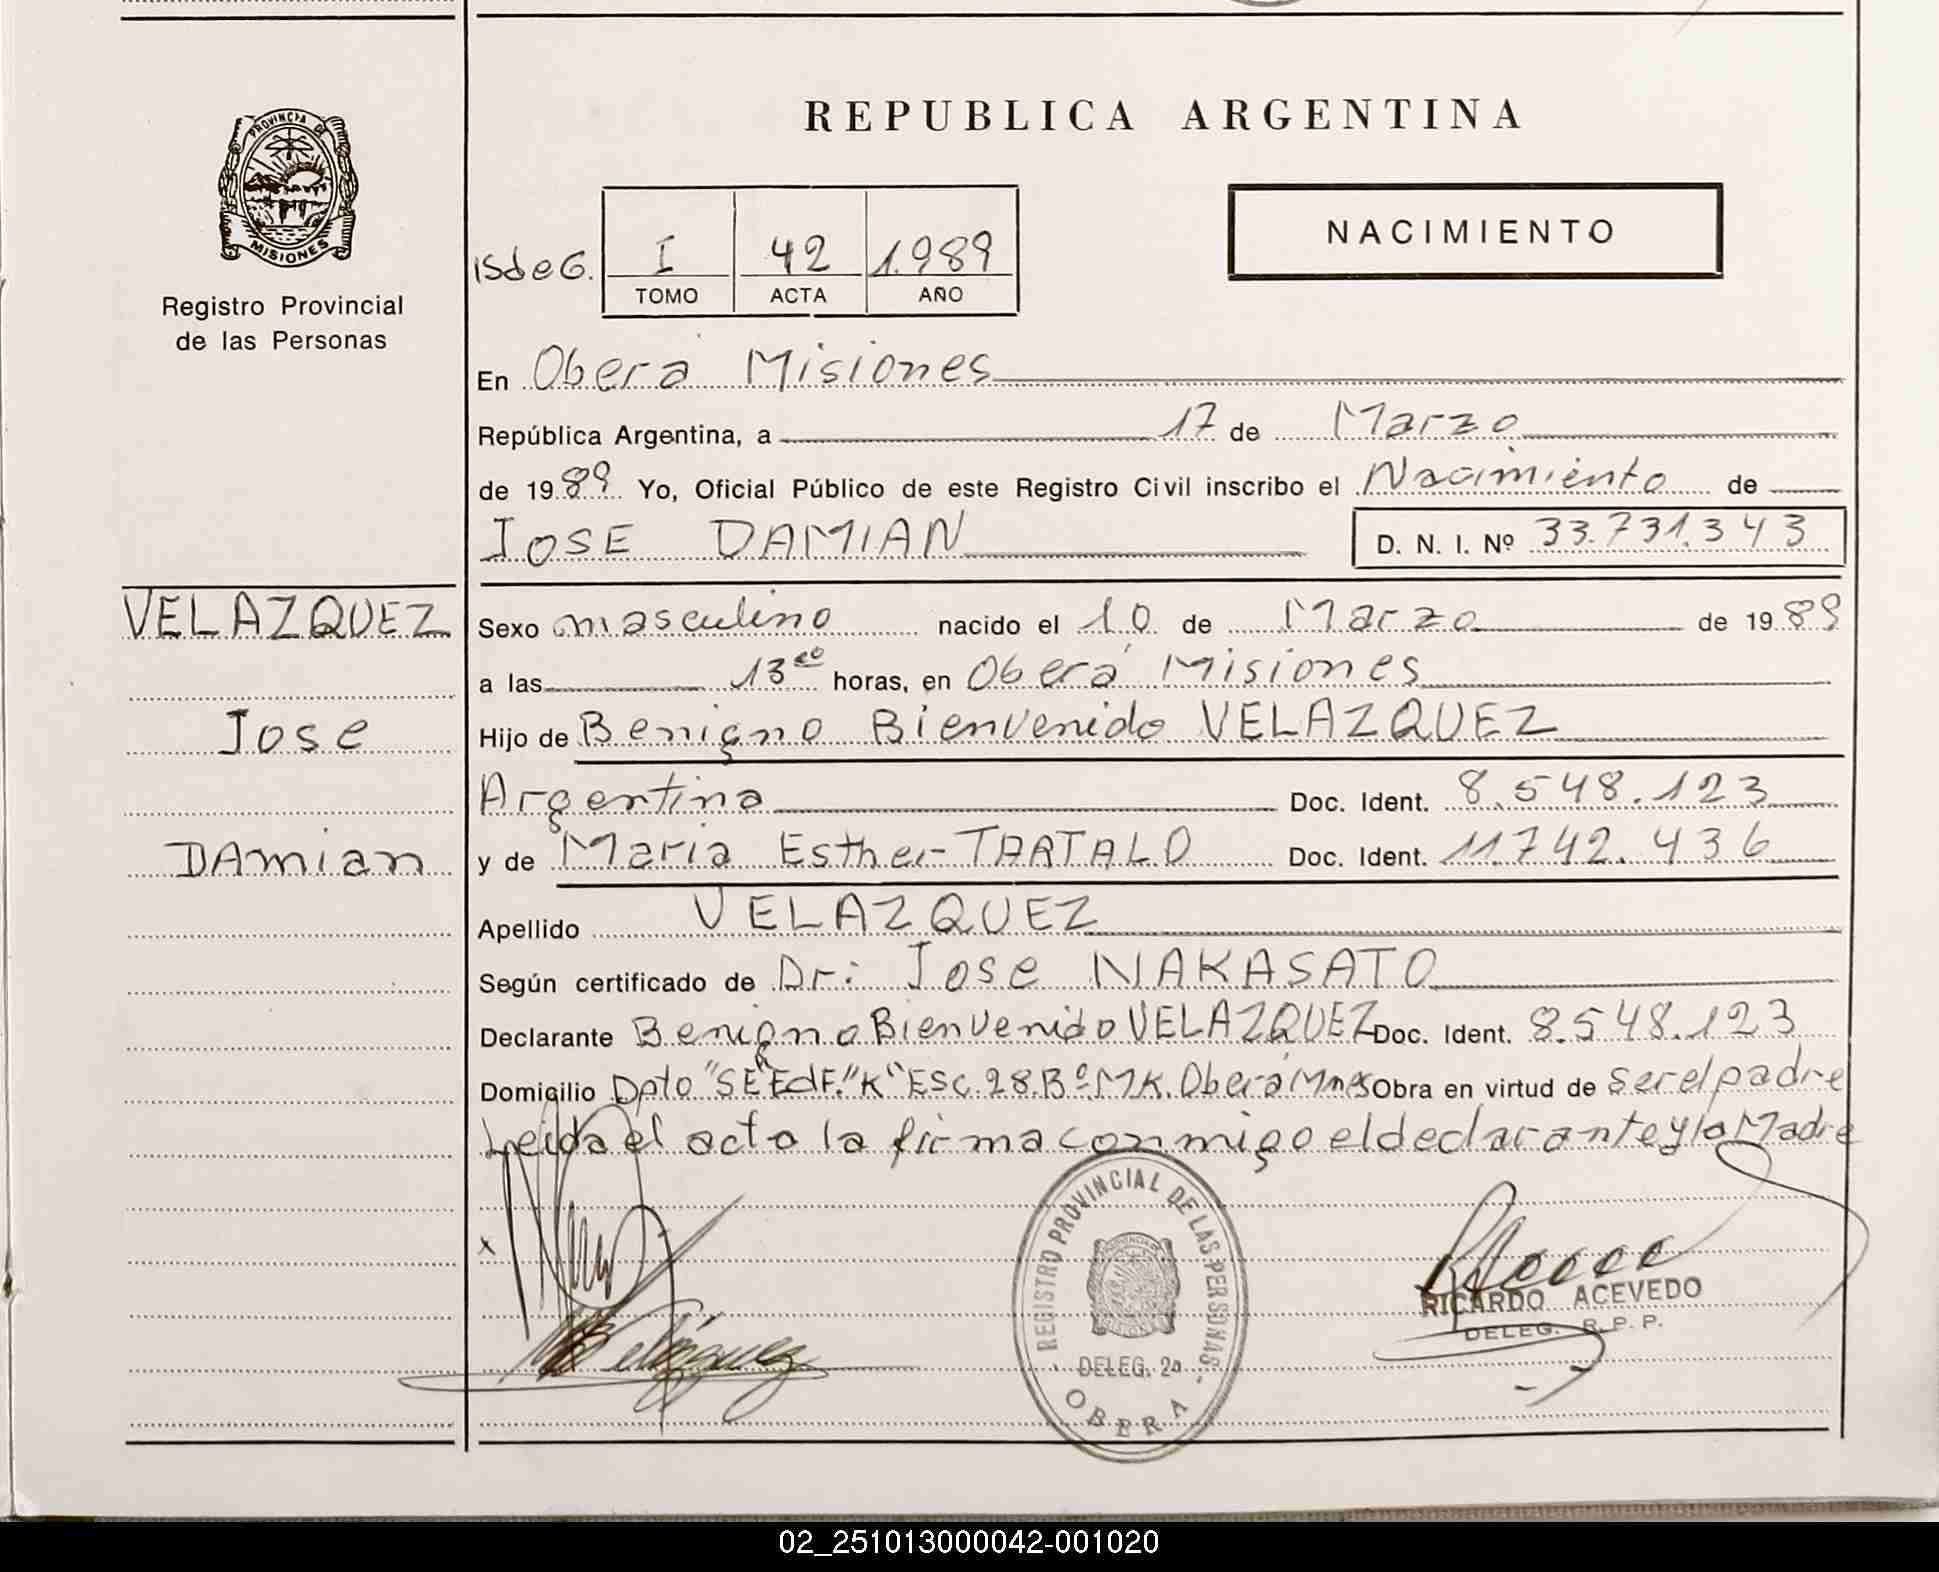 REPUBLICA ARGENTINA
PROVINCIA DE
MISIONES
Registro Provincial
de las Personas
NACIMIENTO
ISdeG. I 42 1.989
TOMO ACTA AÑO
En Oberá Misiones
República Argentina, a 17 de Marzo
de 1989 Yo, Oficial Público de este Registro Civil inscribo el Nacimiento de
JOSE DAMIAN D. N. I. Nº 33.731.343
VELAZQUEZ
Jose
DAmian
Sexo masculino nacido el 10 de Marzo de 1989
a las 13 horas, en Oberá Misiones
Hijo de Benigno Bienvenido VELAZQUEZ
Argentina Doc. Ident. 8.548.123
y de Maria Esther TARTALO Doc. Ident. 11.742.436
Apellido VELAZQUEZ
Según certificado de Dr: Jose NAKASATO
Declarante Benigno Bienvenido VELAZQUEZ Doc. Ident. 8.548.123
Domicilio Dpto "SE" EdF. "K" Esc. 28. Bº MK. Oberá Mnes Obra en virtud de ser el padre
Leida el acto la firma conmigo el declarante y la Madre
x
Velázquez
REGISTRO PROVINCIAL DE LAS PERSONAS
DELEG. 2a
OBERA
RICARDO ACEVEDO
DELEG. R. P. P.
02_251013000042-001020